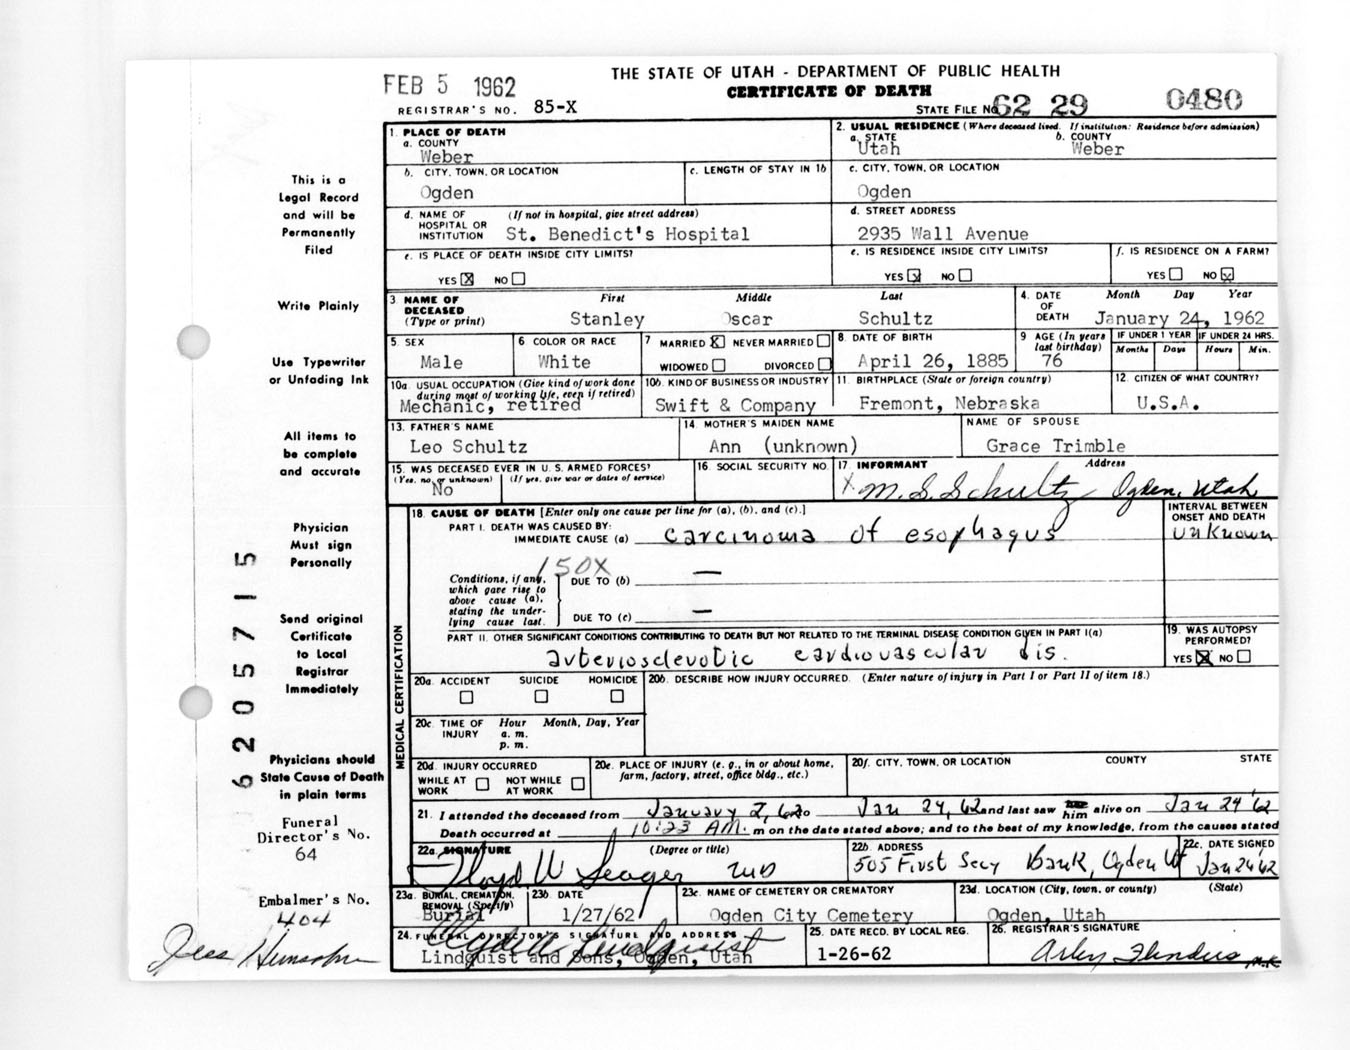 THE STATE OF UTAH - DEPARTMENT OF PUBLIC HEALTH
FEB 5 1962
CERTIFICATE OF DEATH
REGISTRAR'S NO. 85-X
STATE FILE No 62 29 0480
1. PLACE OF DEATH
a. COUNTY
Weber
2. USUAL RESIDENCE (Where deceased lived. If institution: Residence before admission)
a. STATE
Utah
b. COUNTY
Weber
b. CITY, TOWN, OR LOCATION
Ogden
c. LENGTH OF STAY IN 1b
c. CITY, TOWN, OR LOCATION
Ogden
d. NAME OF HOSPITAL OR INSTITUTION
(If not in hospital, give street address)
St. Benedict's Hospital
d. STREET ADDRESS
2935 Wall Avenue
e. IS PLACE OF DEATH INSIDE CITY LIMITS?
YES X NO
e. IS RESIDENCE INSIDE CITY LIMITS?
YES X NO
f. IS RESIDENCE ON A FARM?
YES NO X
3. NAME OF DECEASED
(Type or print)
First Middle Last
Stanley Oscar Schultz
4. DATE OF DEATH
Month Day Year
January 24, 1962
5. SEX
Male
6 COLOR OR RACE
White
7 MARRIED X NEVER MARRIED
WIDOWED DIVORCED
8. DATE OF BIRTH
April 26, 1885
9 AGE (In years last birthday)
76
IF UNDER 1 YEAR
Months Days
IF UNDER 24 HRS.
Hours Min.
10a. USUAL OCCUPATION (Give kind of work done during most of working life, even if retired)
Mechanic, retired
10b. KIND OF BUSINESS OR INDUSTRY
Swift & Company
11. BIRTHPLACE (State or foreign country)
Fremont, Nebraska
12. CITIZEN OF WHAT COUNTRY?
U.S.A.
13. FATHER'S NAME
Leo Schultz
14. MOTHER'S MAIDEN NAME
Ann (unknown)
NAME OF SPOUSE
Grace Trimble
15. WAS DECEASED EVER IN U.S. ARMED FORCES?
(Yes, no, or unknown) (If yes, give war or dates of service)
No
16. SOCIAL SECURITY NO.
17. INFORMANT Address
X M. S. Schultz Ogden, Utah
MEDICAL CERTIFICATION
18. CAUSE OF DEATH [Enter only one cause per line for (a), (b), and (c).]
PART I. DEATH WAS CAUSED BY:
IMMEDIATE CAUSE (a) carcinoma of esophagus
INTERVAL BETWEEN ONSET AND DEATH
unknown
150X
Conditions, if any, which gave rise to above cause (a), stating the underlying cause last.
DUE TO (b) —
DUE TO (c) —
PART II. OTHER SIGNIFICANT CONDITIONS CONTRIBUTING TO DEATH BUT NOT RELATED TO THE TERMINAL DISEASE CONDITION GIVEN IN PART I(a)
arteriosclerotic cardiovascular dis.
19. WAS AUTOPSY PERFORMED?
YES X NO
20a. ACCIDENT SUICIDE HOMICIDE
20b. DESCRIBE HOW INJURY OCCURRED. (Enter nature of injury in Part I or Part II of item 18.)
20c. TIME OF INJURY
Hour Month, Day, Year
a. m.
p. m.
20d. INJURY OCCURRED
WHILE AT WORK NOT WHILE AT WORK
20e. PLACE OF INJURY (e. g., in or about home, farm, factory, street, office bldg., etc.)
20f. CITY, TOWN, OR LOCATION COUNTY STATE
21. I attended the deceased from January 2, 62 to Jan 24, 62 and last saw him alive on Jan 24 '62
Death occurred at 10:23 AM. m on the date stated above; and to the best of my knowledge, from the causes stated
22a. SIGNATURE (Degree or title)
Floyd W Seager MD
22b. ADDRESS
505 First Secy Bank, Ogden Ut
22c. DATE SIGNED
Jan 24 '62
23a. BURIAL, CREMATION, REMOVAL (Specify)
Burial
23b. DATE
1/27/62
23c. NAME OF CEMETERY OR CREMATORY
Ogden City Cemetery
23d. LOCATION (City, town, or county) (State)
Ogden, Utah
24. FUNERAL DIRECTOR'S SIGNATURE AND ADDRESS
Lindquist and Sons, Ogden, Utah
25. DATE RECD. BY LOCAL REG.
1-26-62
26. REGISTRAR'S SIGNATURE
Arley Flinders
M.K
This is a
Legal Record
and will be
Permanently
Filed
Write Plainly
Use Typewriter
or Unfading Ink
All items to
be complete
and accurate
Physician
Must sign
Personally
Send original
Certificate
to Local
Registrar
Immediately
Physicians should
State Cause of Death
in plain terms
Funeral
Director's No.
64
Embalmer's No.
404
6205715